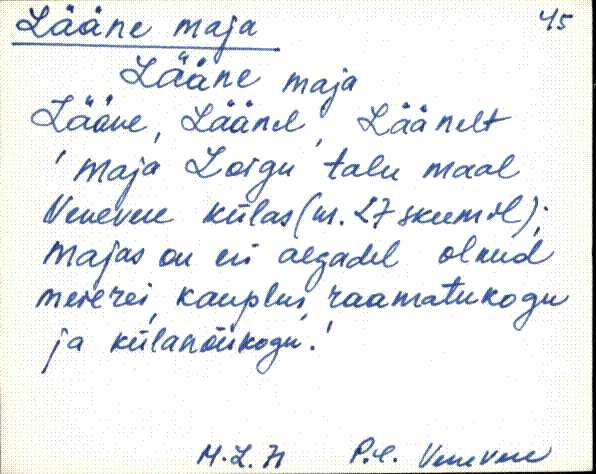 Lääne maja 45
Lääne maja
Lääne, Läänel, Läänelt
'maja Loigu talu maal
Venevere külas (nr. 27 skeemil);
majas on eri aegadel olnud
meierei, kauplus, raamatukogu
ja külanõukogu.'
M.L. 71 P.-C. Venevere